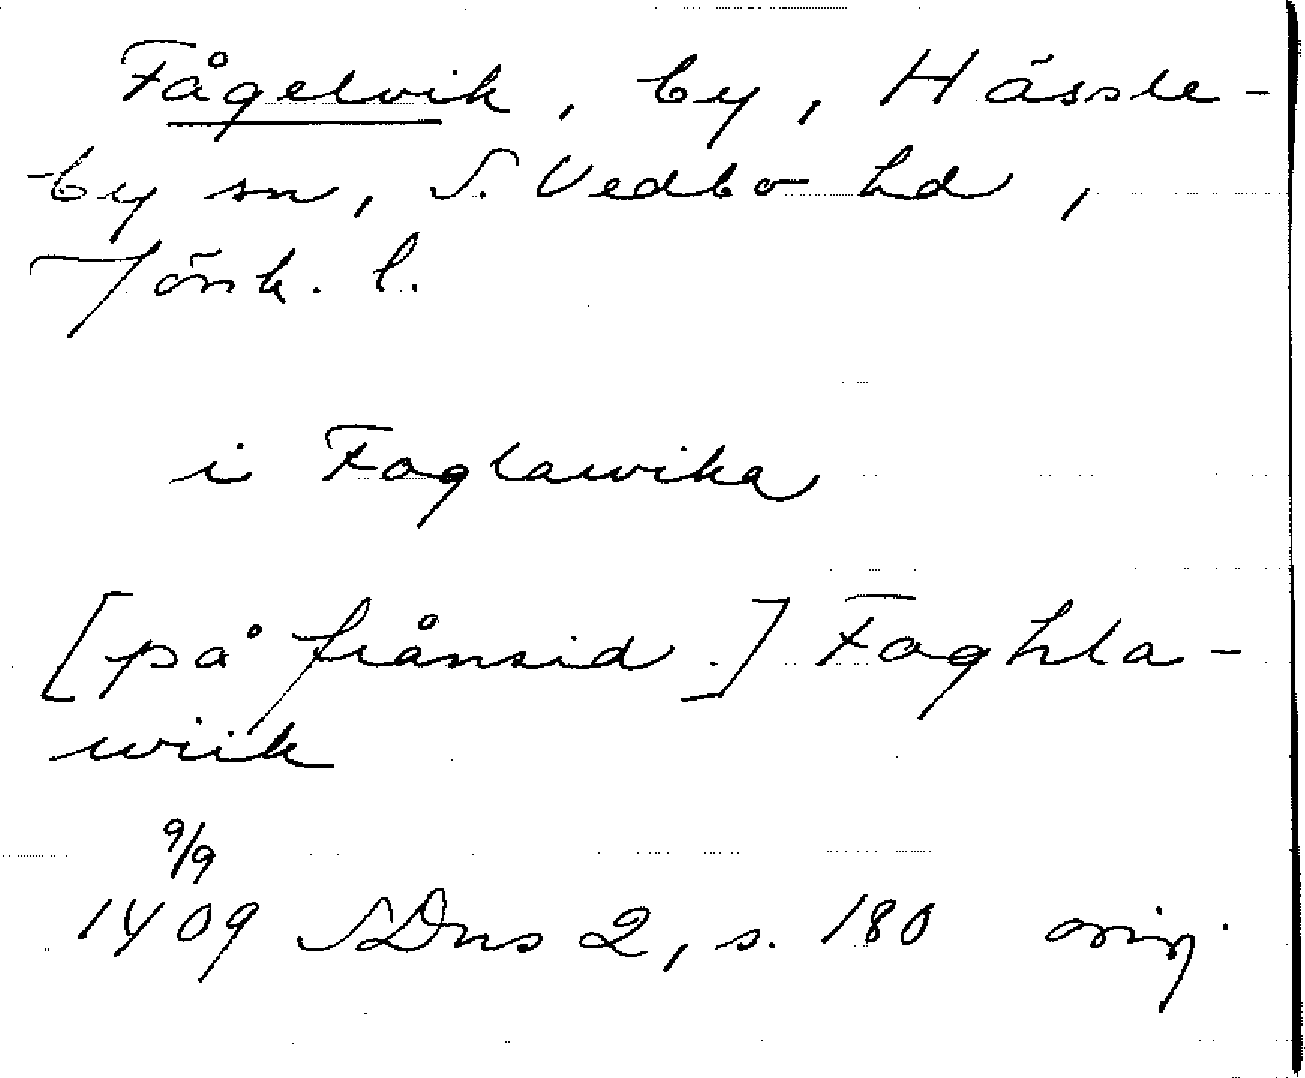 Fågelvik, by, Hässle-
by sn, S. Vedbo hd,
Jönk. l.
i Foglawika
[på frånsid.] Foghla-
wiik
9/9
1409 SDns 2, s. 180 orig.